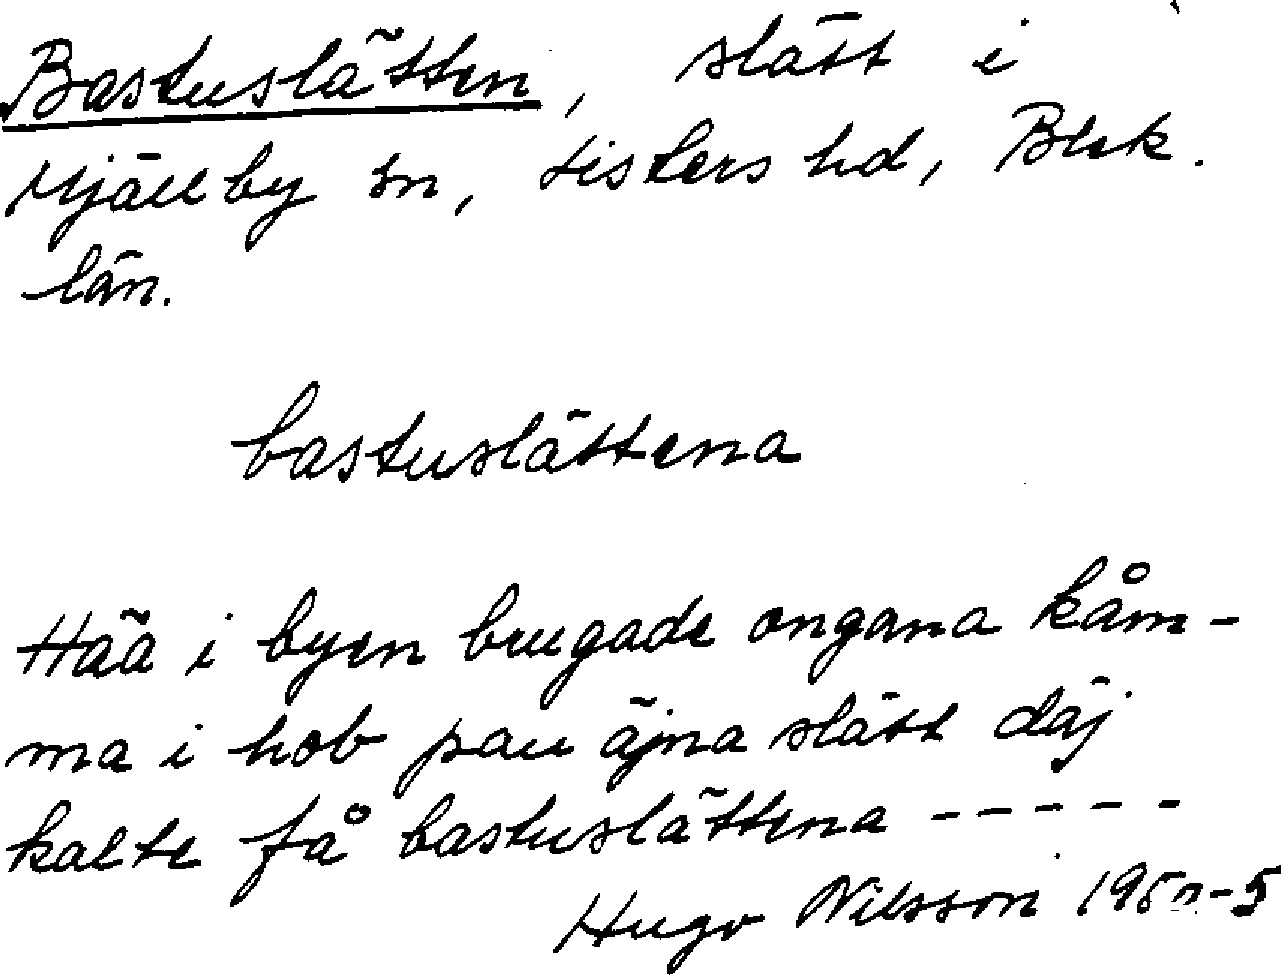 Bastuslätten, slätt i
Mjällby sn, Listers hd, Blek.
län.
bastuslättena
Hää i byen brugade ongana kåm-
ma i hob pau äjna slätt däj
kalte få bastuslättena -----
Hugo Nilsson